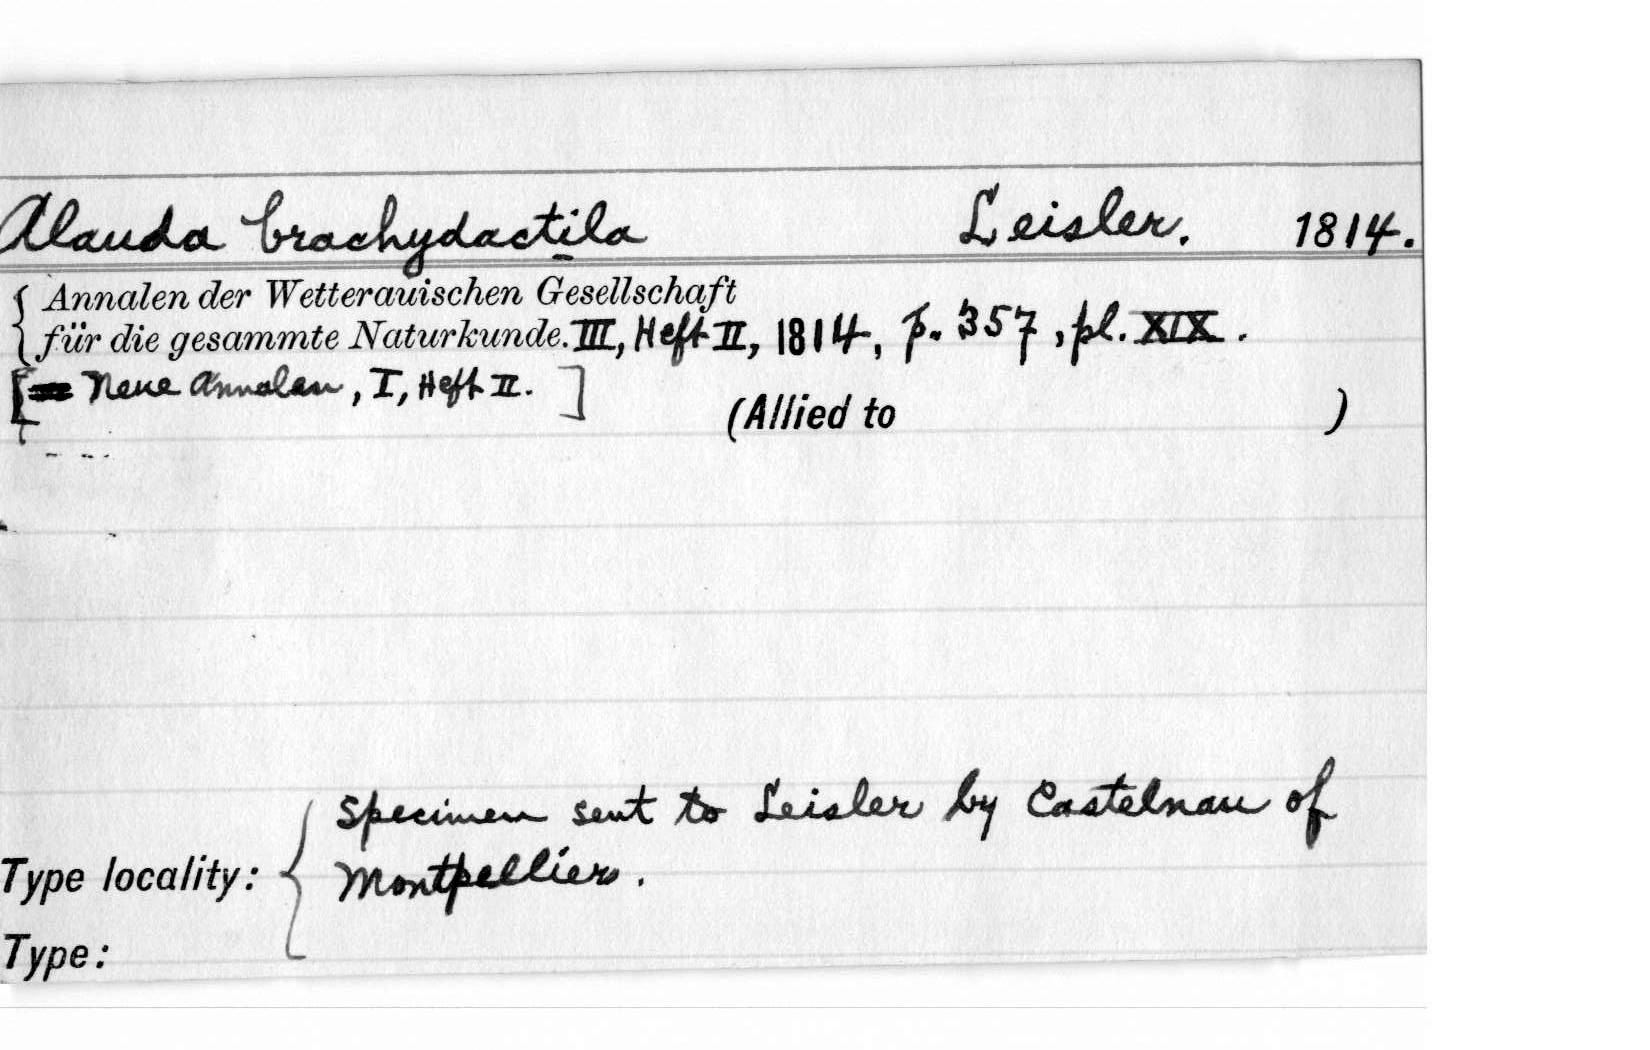 Alauda brachydactila Leisler. 1814.
Annalen der Wetterauischen Gesellschaft
für die gesammte Naturkunde. III, Heft II, 1814, p. 357, pl. XIX.
[Neue Annalen, I, Heft II.]
(Allied to )
Specimen sent to Leisler by Castelnau of
Type locality: Montpellier.
Type: